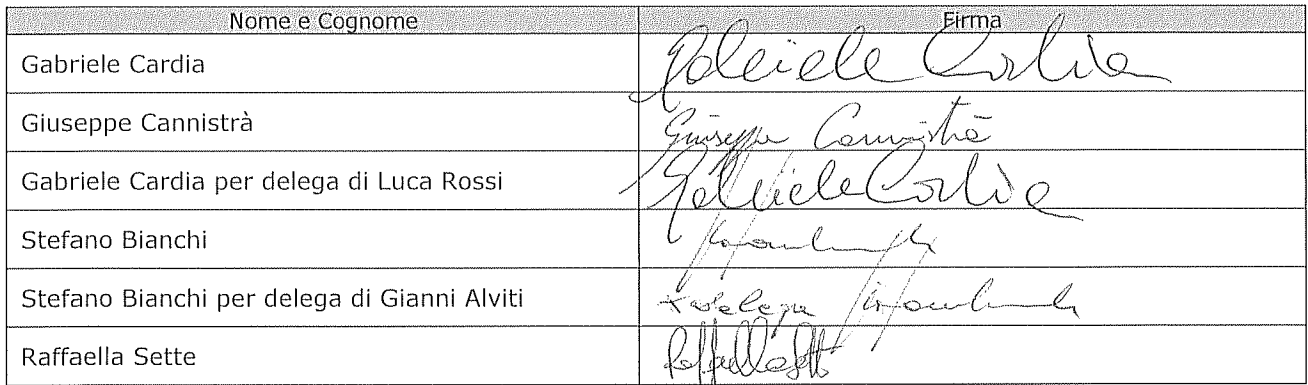 Nome e Cognome Firma
Gabriele Cardia Gabriele Cardia
Giuseppe Cannistrà Giuseppe Cannistrà
Gabriele Cardia per delega di Luca Rossi Gabriele Cardia
Stefano Bianchi
Stefano Bianchi per delega di Gianni Alviti
Raffaella Sette Raffaella Sette